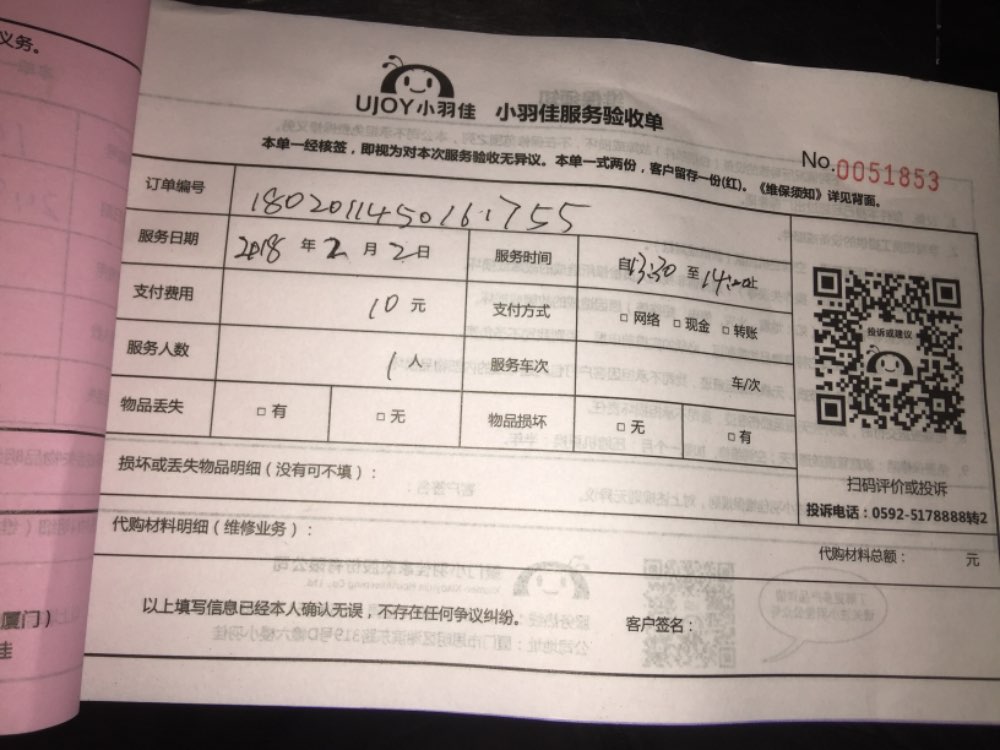 义务。
UJOY小羽佳 小羽佳服务验收单
No.0051853
本单一经核签，即视为对本次服务验收无异议。本单一式两份，客户留存一份(红)。《维保须知》详见背面。
订单编号 1802011450161755
服务日期 2018 年 2 月 2 日 服务时间 自13:30 至 14:00止
支付费用 10 元 支付方式 □ 网络 □ 现金 □ 转账
投诉或建议
服务人数 1 人 服务车次 车/次
物品丢失 □ 有 □ 无 物品损坏 □ 无 □ 有
损坏或丢失物品明细（没有可不填）：
扫码评价或投诉
投诉电话：0592-5178888转2
代购材料明细（维修业务）：
代购材料总额： 元
以上填写信息已经本人确认无误，不存在任何争议纠纷。 客户签名：
厦门）
佳